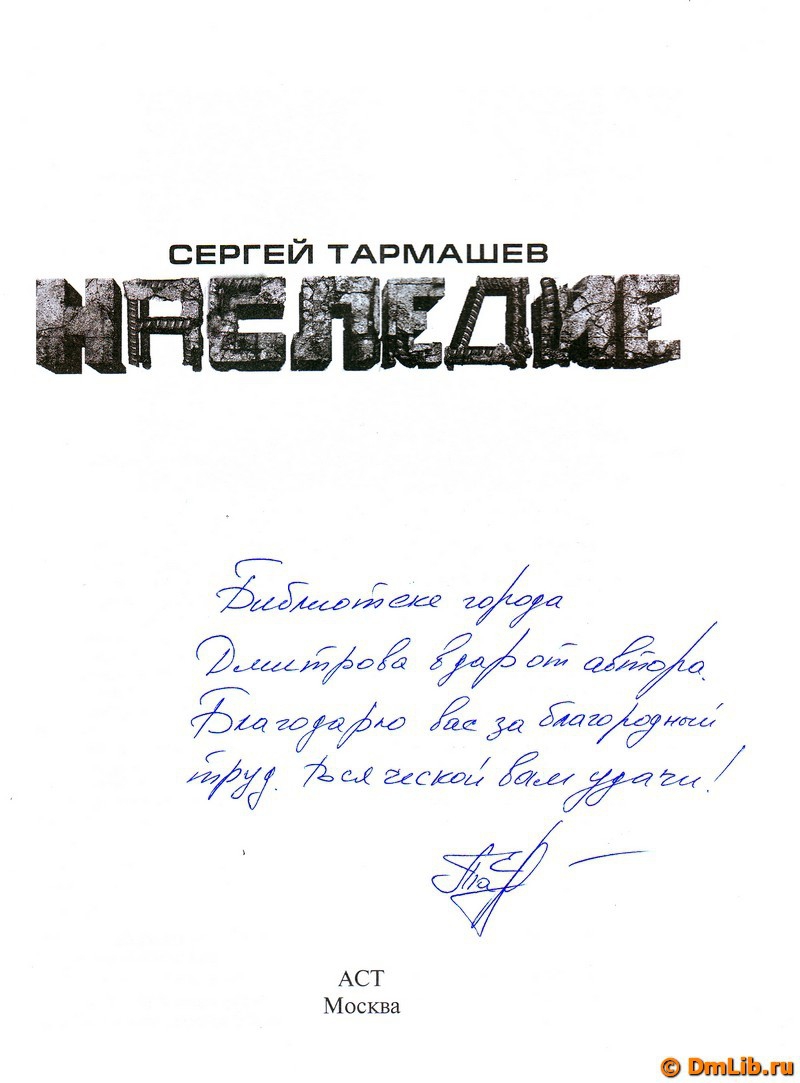 СЕРГЕЙ ТАРМАШЕВ
НАСЛЕДИЕ
Библиотеке города
Дмитрова в дар от автора.
Благодарю вас за благородный
труд. Всяческой вам удачи!
АСТ
Москва
© DmLib.ru